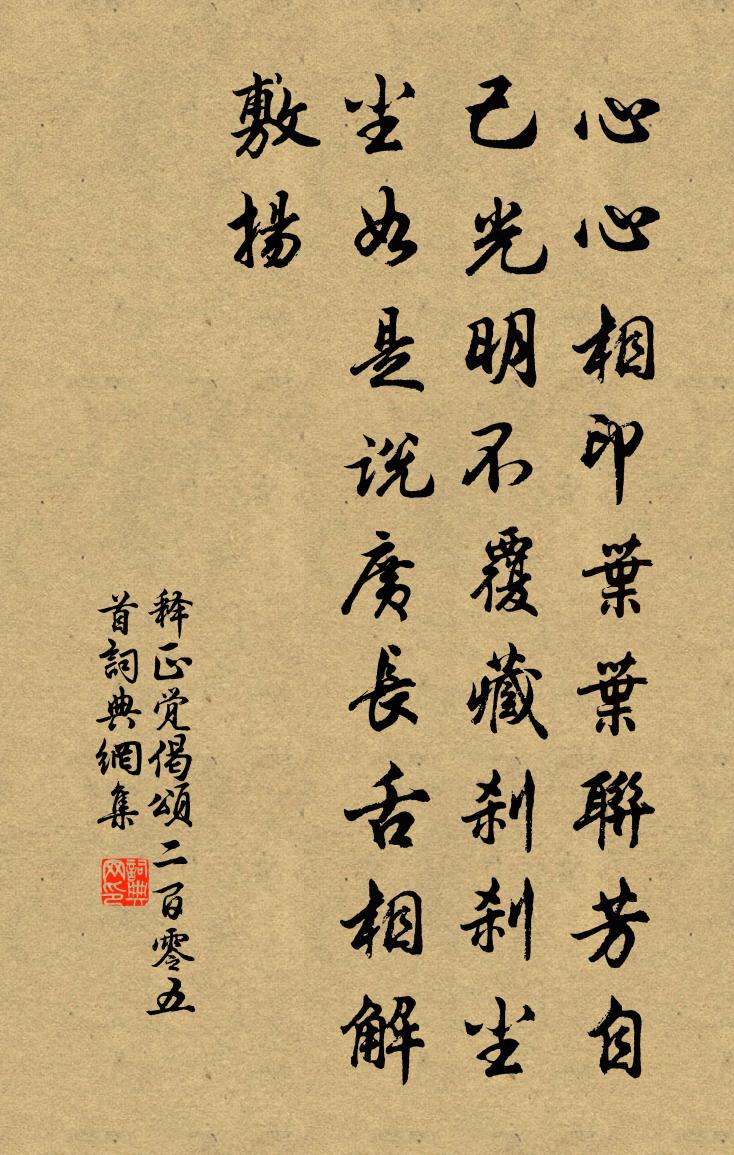 心心相印葉葉聯芳自
己光明不覆藏刹刹尘
尘如是説廣長舌相解
敷揚
释正觉偈頌二百零五
首詞典網集
詞典
网印